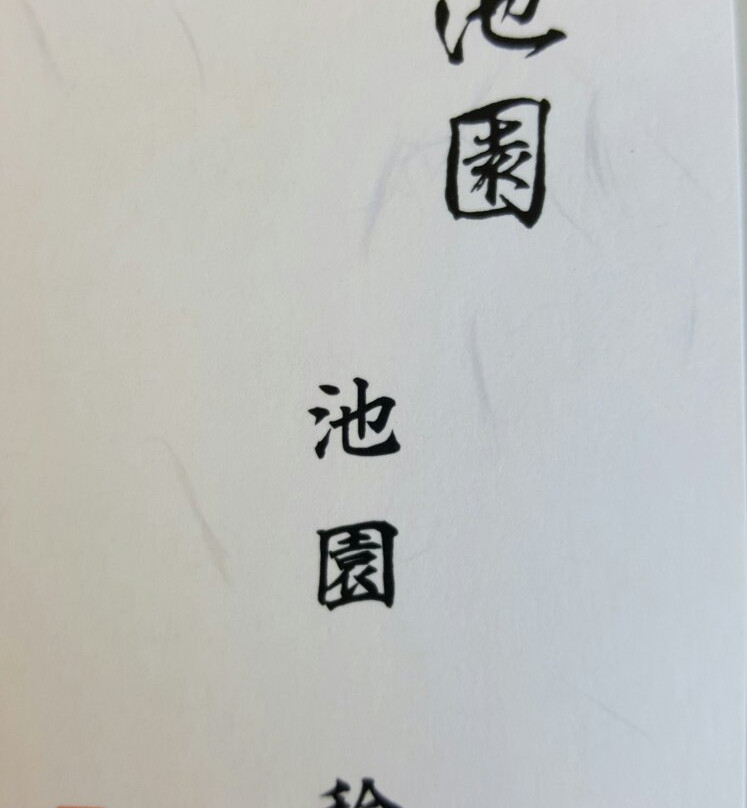 池園
池園